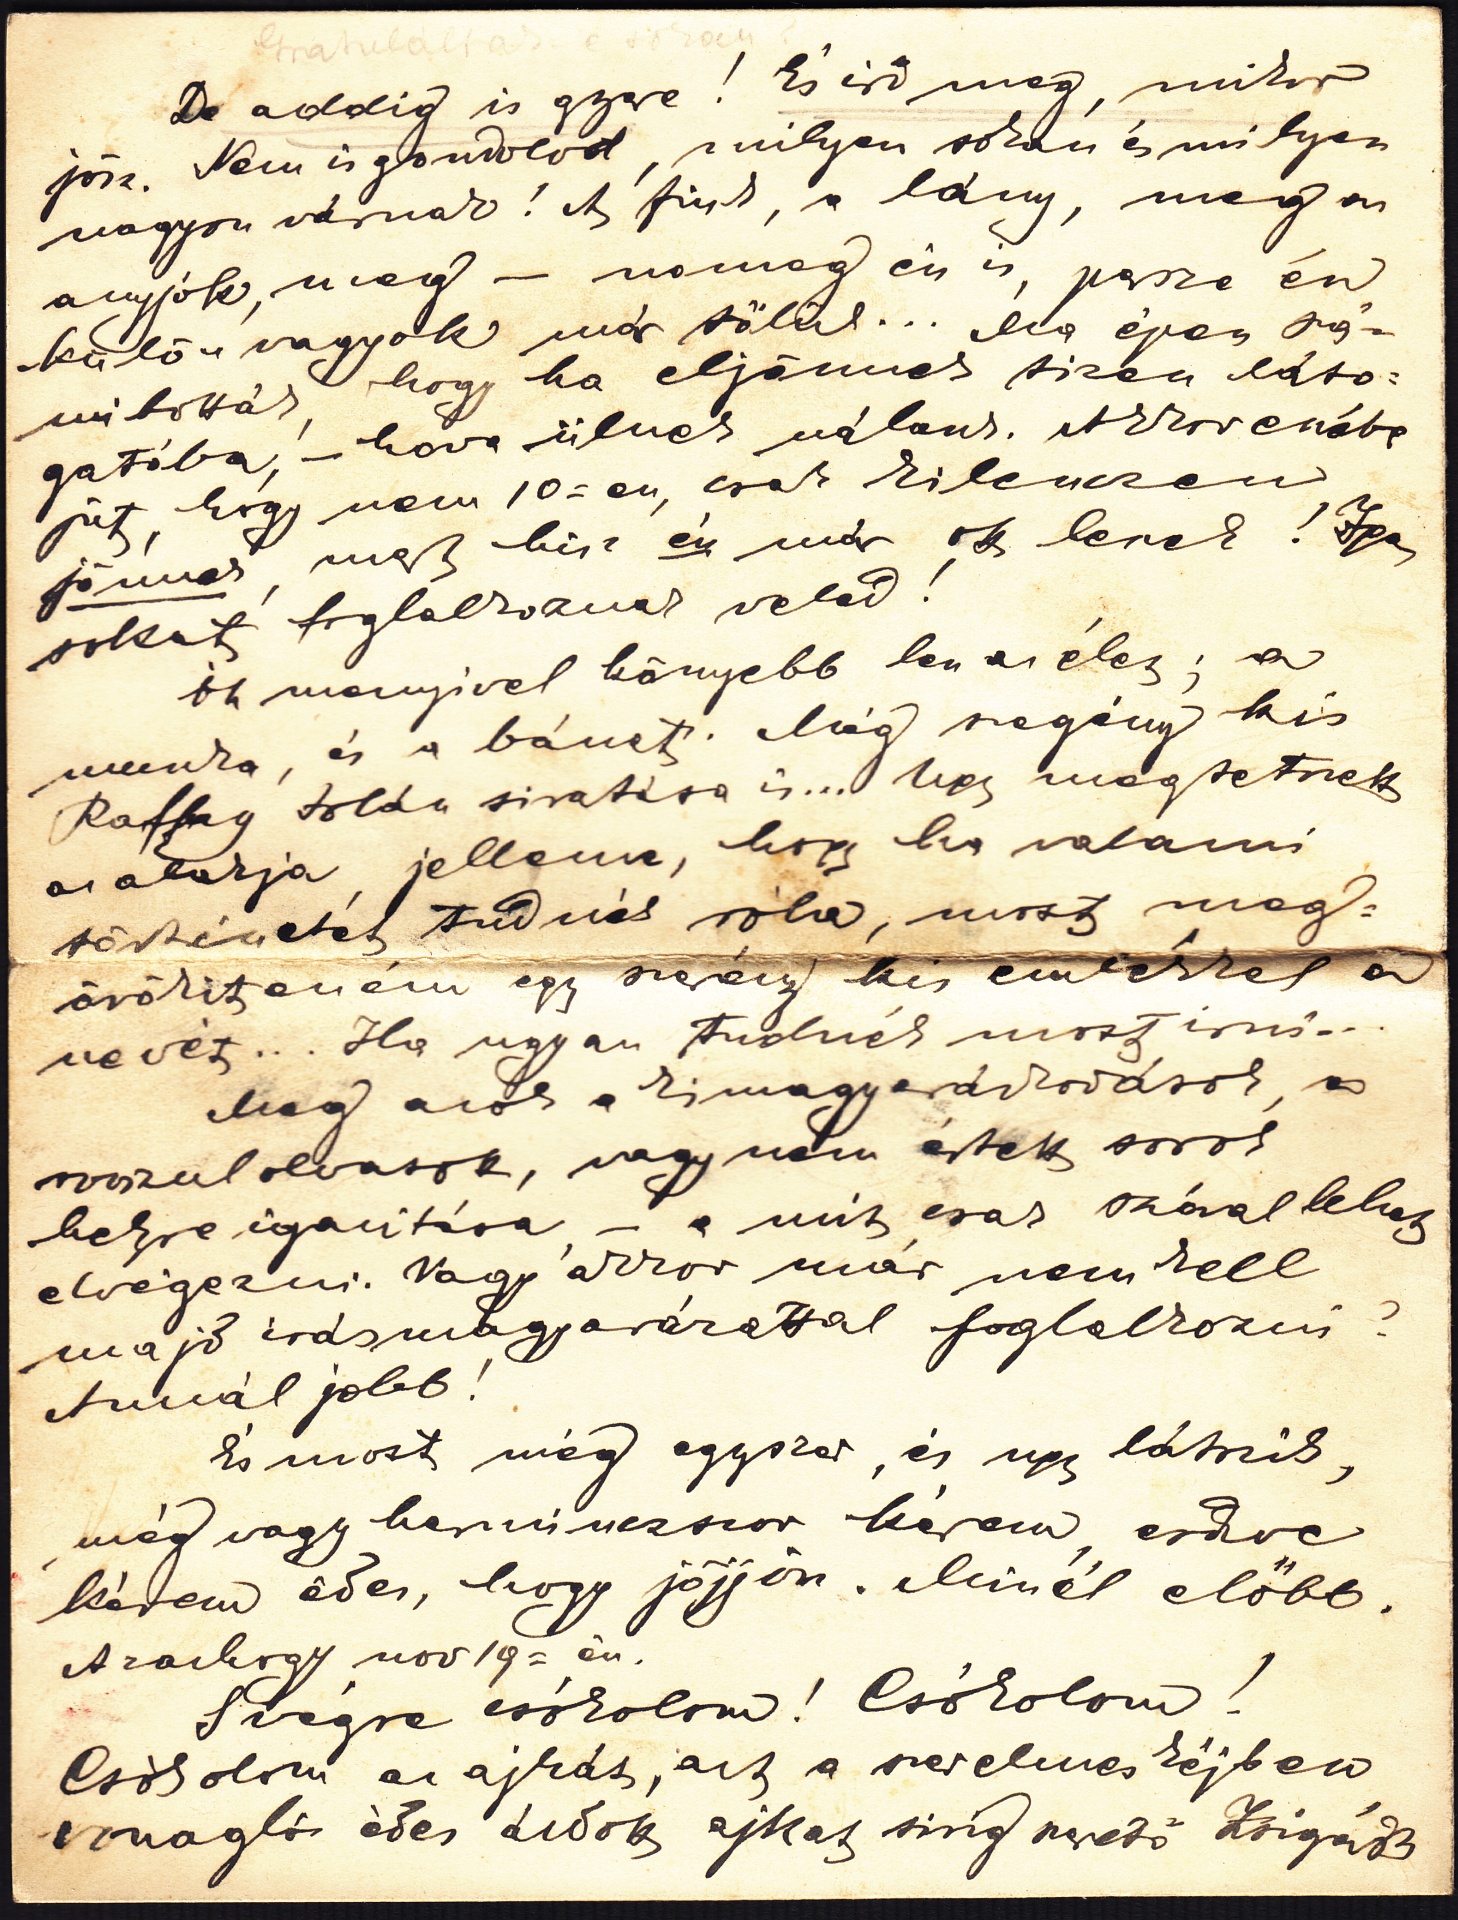 Gratuláltak e sokan?
De addig is gyere! És ird meg, mikor
jösz. Nem is gondolod, milyen sokan és milyen
nagyon várnak! A fiuk, a lány, meg az
anyjók, meg – nameg én is, persze én
külön vagyok már tölük... Ma épen szá=
mitották, hogy ha eljönnek tizen láto=
gatóba, – hova ülnek nálam. Akkor eszébe
jut, hogy nem 10=en, csak kilenczen
jönnek, mert hisz én már ott leszek! Igen
sokat foglalkoznak veled!
Óh menyivel könyebb lesz az élet; a
munka, és a bánat. Még szegény kis
Raffay Zoltán siratása is... Ugy megtetszett
az alakja, jelleme, hogy ha valami
történetét tudnék róla, most meg=
örökiteném egy szerény kis emlékkel a
nevét... Ha ugyan tudnék most irni...
Meg azok a kimagyarázkodások, a
rosszul olvasott, vagy nem értett sorok
helyre igazitása, – a mit csak szóval lehet
elvégezni. Vagy akkor már nem kell
majd irásmagyarázattal foglalkozni?
Annál jobb!
És most még egyszer, és ugy látszik,
még vagy harminczszor kérem, esdve
kérem édes, hogy jöjjön. Minél előbb.
Azazhogy nov 19=én.
S végre csókolom! Csókolom!
Csókolom az ajkát, azt a szerelmes kéjben
vonagló édes áldott ajkat sirig szerető Zsigádt